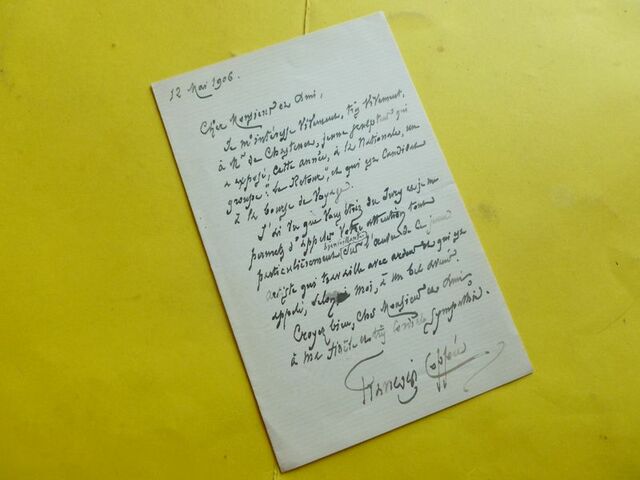 12 Mai 1906.
Cher Monsieur et Ami,
Je m'intéresse vivement, très vivement,
à Mr de Chastenet, jeune sculpteur qui
a exposé, cette année, à la Nationale, un
groupe: "Le Retour", et qui est candidat
à la bourse de voyage.
J'ai vu que vous étiez du Jury et je me
permets d'appeler votre attention toute
particulièrement bienveillante sur l'œuvre de ce jeune
artiste qui travaille avec ardeur et qui est
appelé, selon moi, à un bel avenir.
Croyez bien, cher Monsieur et Ami,
à ma fidèle et très cordiale sympathie.
François Coppée